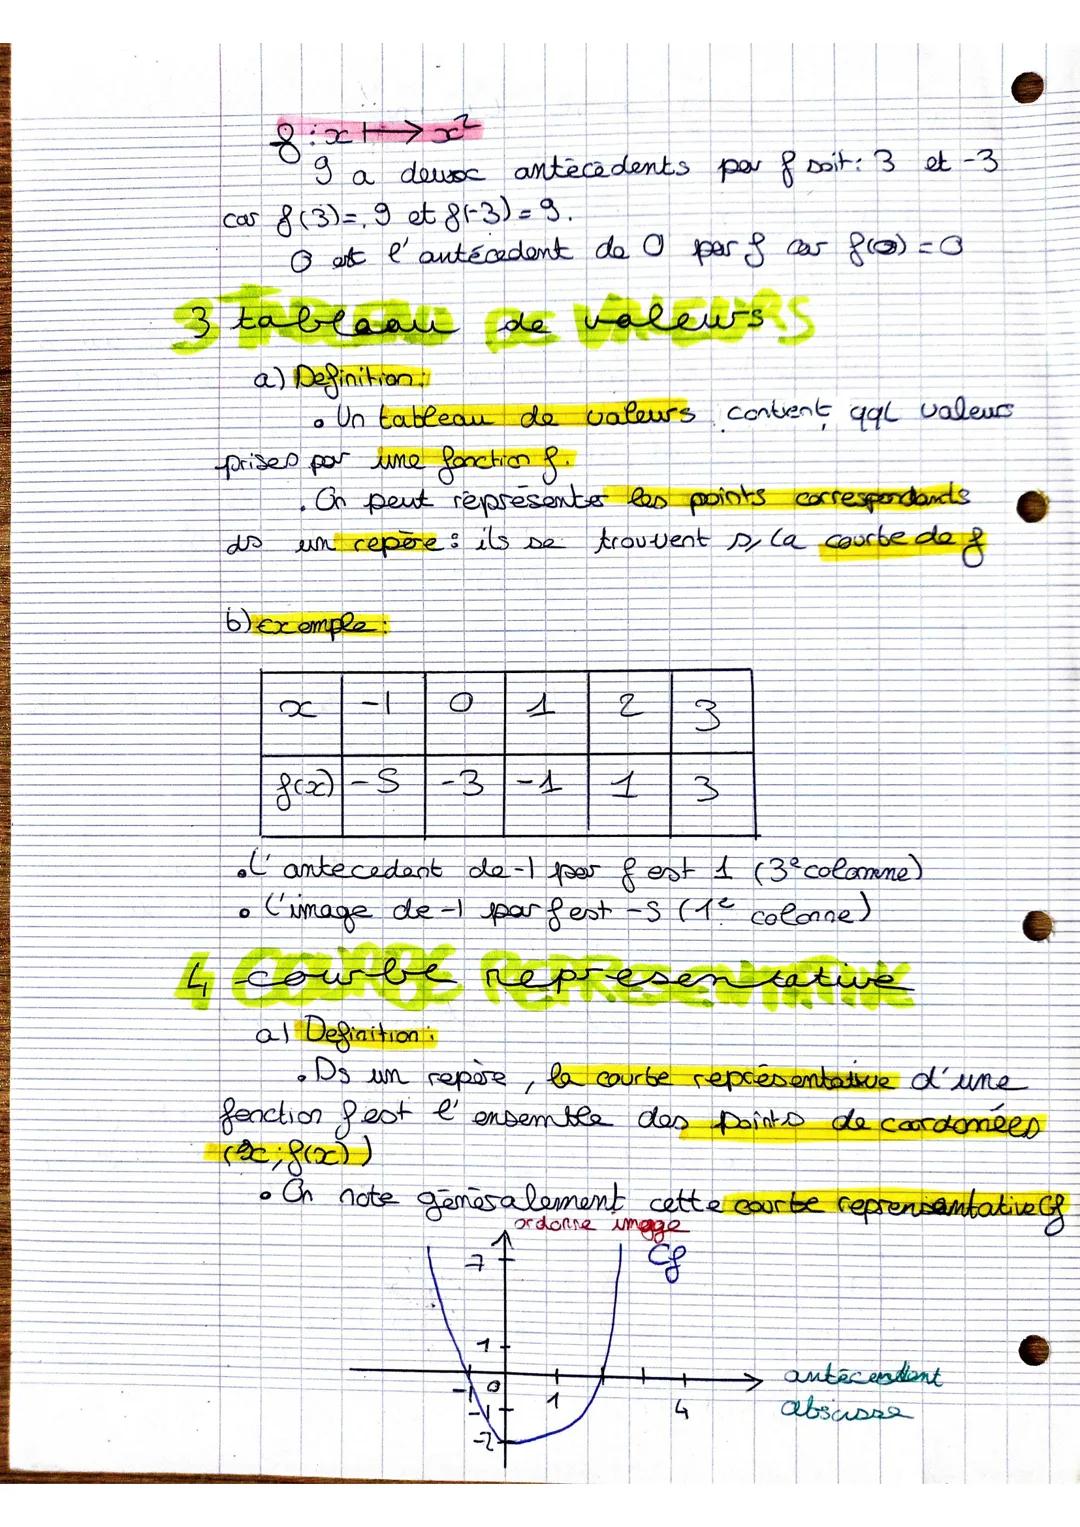 f : x ⟼ x²
9 a deux antécédents par f soit : 3 et -3
car f(3)= 9 et f(-3) = 9.
0 est l'antécedent de 0 par f car f(0) = 0
3 tableau de valeurs
a) Definition :
• Un tableau de valeurs contient qql valeurs
prises par une fonction f.
• On peut représenter les points correspondants
ds un repère : ils se trouvent s/ la courbe de f
b) exemple :
x -1 0 1 2 3
f(x) -5 -3 -1 1 3
• L'antecedent de -1 par f est 1 (3e colonne)
• L'image de -1 par f est -5 (1e colonne)
4 courbe representative
a) Definition :
• Ds un repère, la courbe représentative d'une
fonction f est l'ensemble des points de coordonnées
(x ; f(x))
• On note généralement cette courbe reprensentative Cf
ordonne image
7 Cf
1
antécendant
-1 0 1 4
abscisse
-1
-2